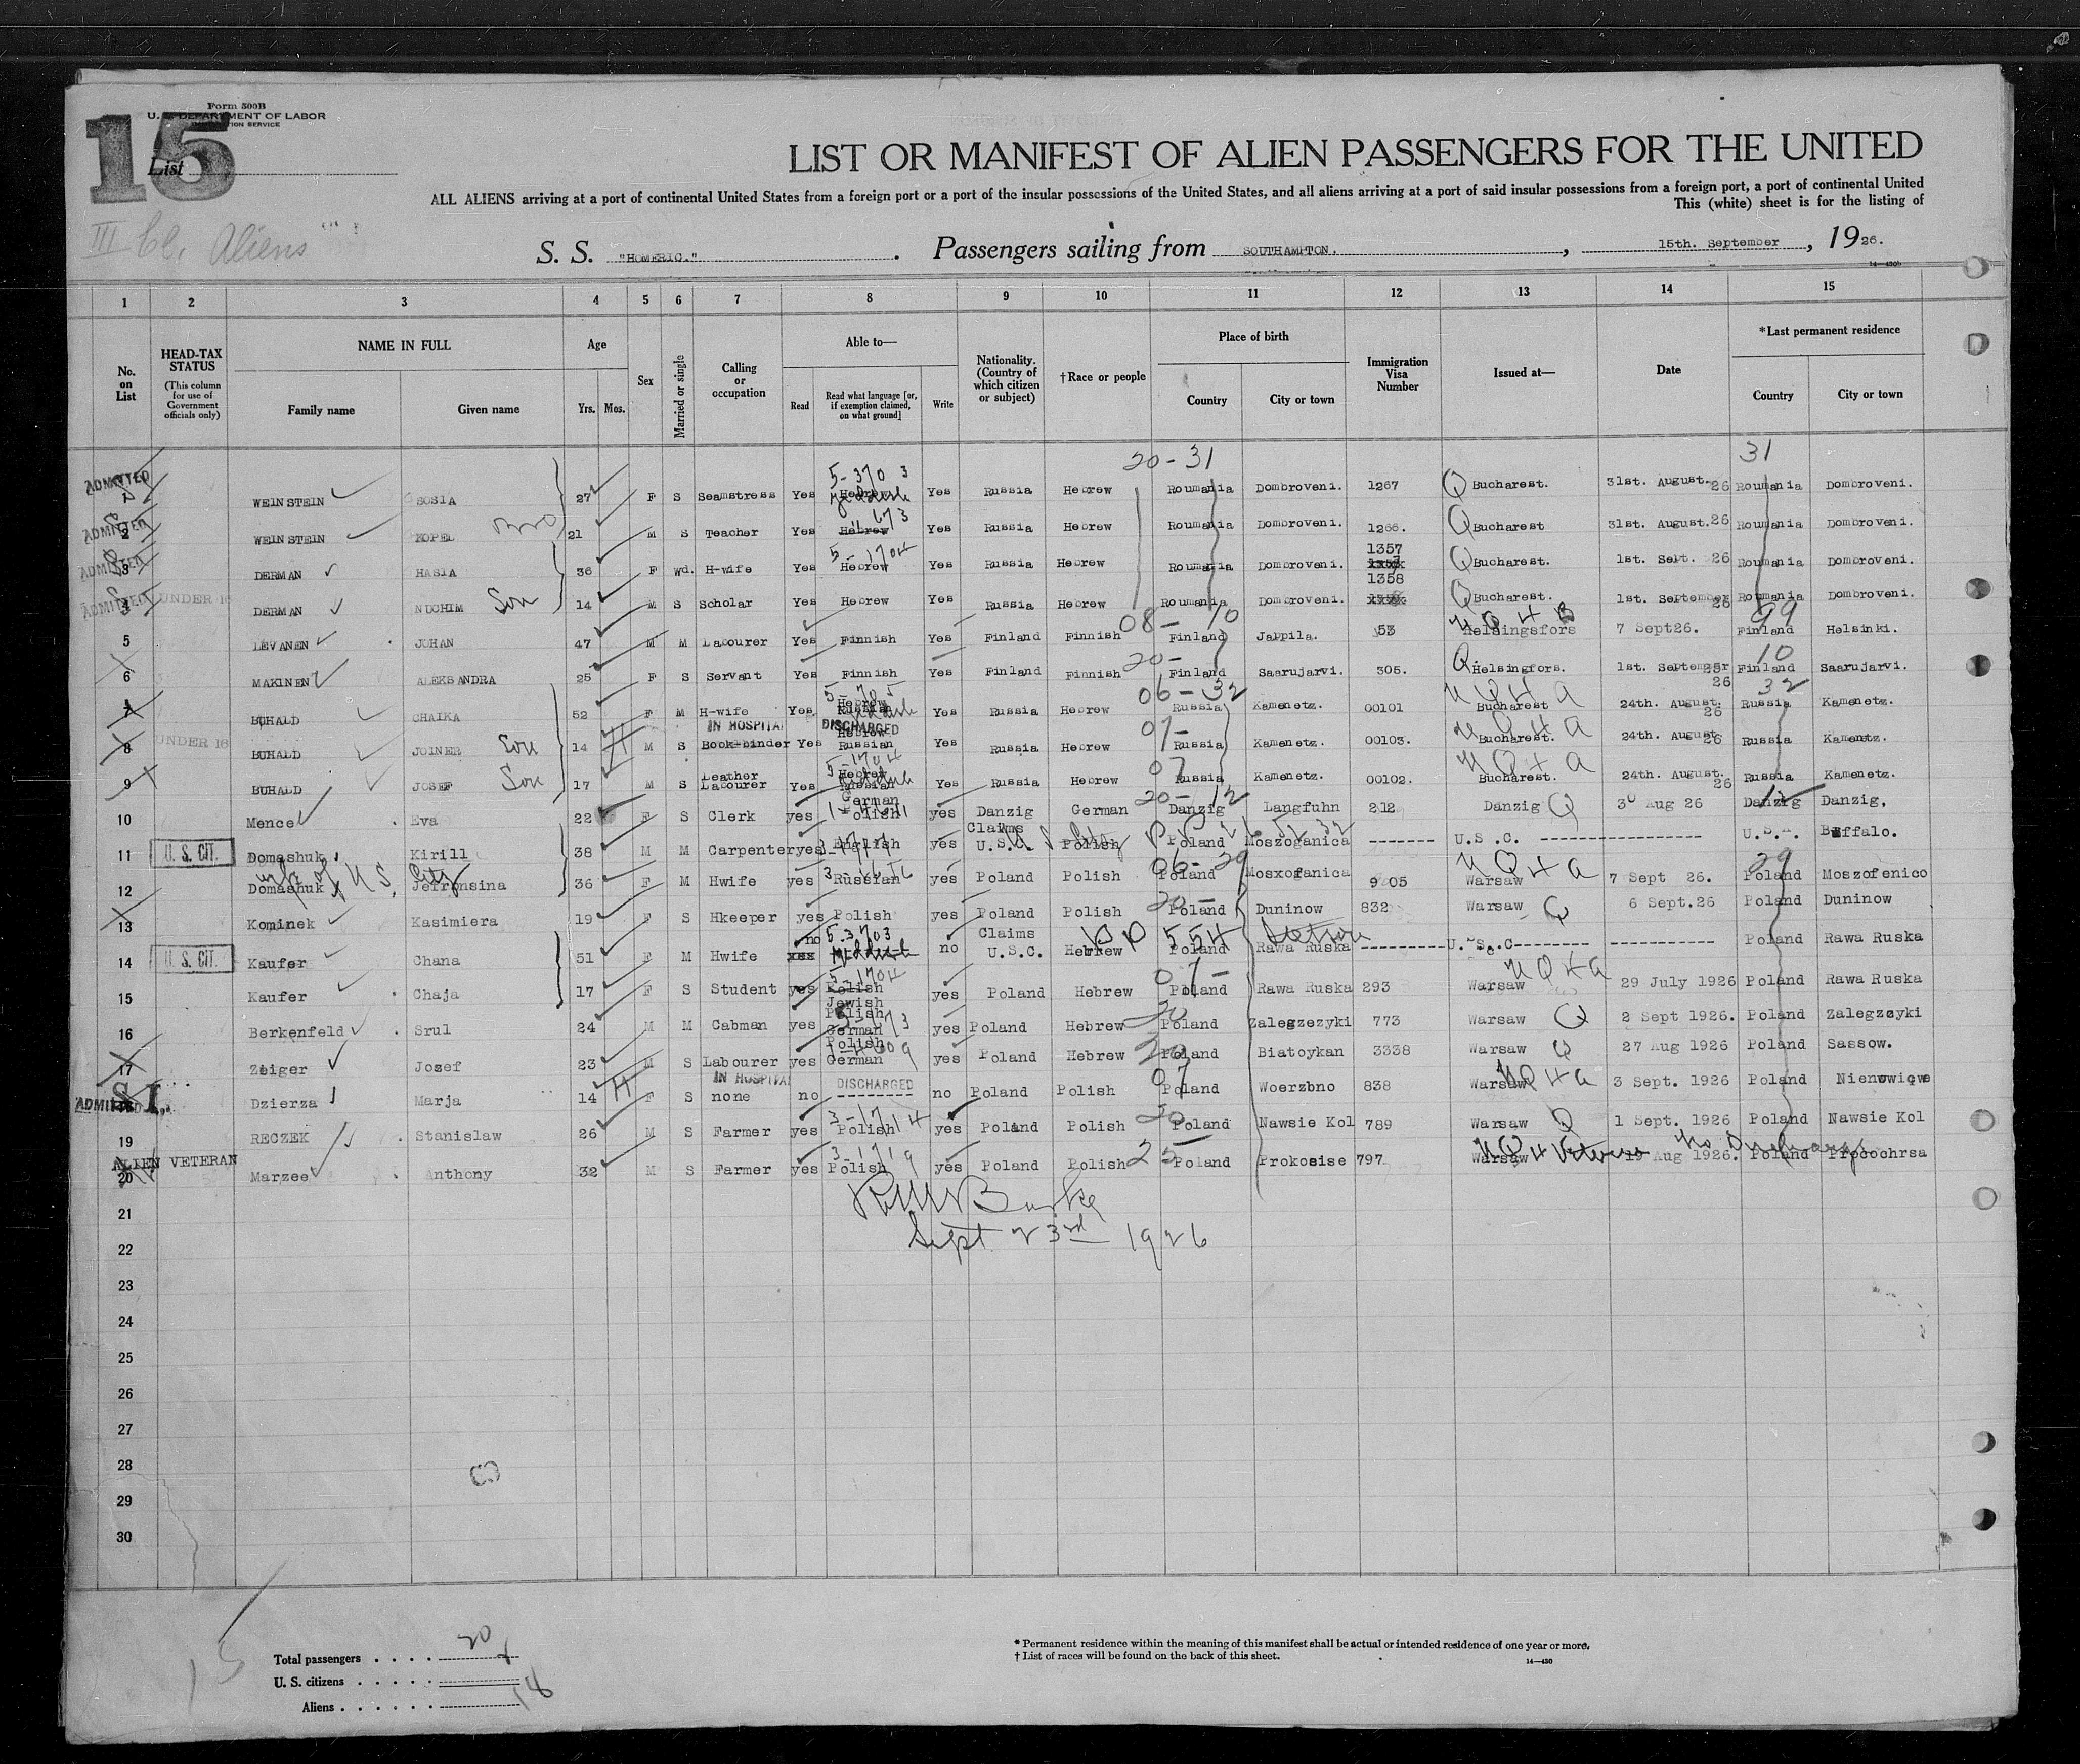 Form 500B
U. S. DEPARTMENT OF LABOR
IMMIGRATION SERVICE
15
List
III Cl. Aliens
LIST OR MANIFEST OF ALIEN PASSENGERS FOR THE UNITED
ALL ALIENS arriving at a port of continental United States from a foreign port or a port of the insular possessions of the United States, and all aliens arriving at a port of said insular possessions from a foreign port, a port of continental United
This (white) sheet is for the listing of
S. S. "HOMERIC." Passengers sailing from SOUTHAMPTON. , 15th. September , 1926.
14—430b
1 2 3 4 5 6 7 8 9 10 11 12 13 14 15
No. on List
HEAD-TAX STATUS (This column for use of Government officials only)
NAME IN FULL
Family name Given name
Age
Yrs. Mos.
Sex
Married or single
Calling or occupation
Able to—
Read Read what language [or, if exemption claimed, on what ground] Write
Nationality. (Country of which citizen or subject)
†Race or people
Place of birth
Country City or town
Immigration Visa Number
Issued at—
Date
*Last permanent residence
Country City or town
20-31 31
5-370 3
ADMITTED 1 WEINSTEIN SOSIA 27 F S Seamstress Yes Hebrew Yiddish Yes Russia Hebrew Roumania Dombroveni. 1267 Q Bucharest. 31st. August. 26 Roumania Dombroveni.
ADMITTED 2 WEINSTEIN KOPEL Bro 21 M S Teacher Yes Hebrew Yes Russia Hebrew Roumania Dombroveni. 1266. Q Bucharest 31st. August. 26 Roumania Dombroveni.
5-1704 1357
ADMITTED 3 DERMAN HASIA 36 F Wd. H-wife Yes Hebrew Yes Russia Hebrew Roumania Dombroveni. Q Bucharest. 1st. Sept. 26 Roumania Dombroveni.
1358
ADMITTED 4 UNDER 16 DERMAN NUCHIM Son 14 M S Scholar Yes Hebrew Yes Russia Hebrew Roumania Dombroveni. Q Bucharest. 1st. September 26 Roumania Dombroveni.
08-10 99
5 LEVANEN JOHAN 47 M M Labourer Yes Finnish Yes Finland Finnish Finland Jappila. 53 Helsingsfors 7 Sept26. Finland Helsinki.
20- 10
6 MAKINEN ALEKSANDRA 25 F S Servant Yes Finnish Yes Finland Finnish Finland Saarujarvi. 305. Q Helsingfors. 1st. September 26 Finland Saarujarvi.
06-32 32
7 BUHALD CHAIKA 52 F M H-wife Yes Hebrew Yes Russia Hebrew Russia Kamenetz. 00101 Bucharest 24th. August. 26 Russia Kamenetz.
IN HOSPITAL DISCHARGED
8 UNDER 16 BUHALD JOINER Son 14 M S Book-binder Yes Hebrew Russian Yes Russia Hebrew Russia Kamenetz. 00103. Bucharest. 24th. August 26 Russia Kamenetz.
5-1704 07
9 BUHALD JOSEF Son 17 M S Leather Labourer Yes Hebrew Russian Yes Russia Hebrew Russia Kamenetz. 00102. Bucharest. 24th. August. 26 Russia Kamenetz.
20-12 12
10 Mence Eva 22 F S Clerk yes German Polish yes Danzig German Danzig Langfuhn 212 Danzig Q 30 Aug 26 Danzig Danzig.
11 U. S. CIT. Domashuk Kirill 38 M M Carpenter yes English yes Claims U.S.C. Polish Poland Moszoganica ------- U.S.C. ------------------ U.S.A. Buffalo.
wife of U S. City 06-29 29
12 Domashuk Jefronsina 36 F M Hwife yes Russian yes Poland Polish Poland Mosxofanica 9505 Warsaw 7 Sept 26. Poland Moszofenico
20-
13 Kominek Kasimiera 19 F S Hkeeper yes Polish yes Poland Polish Poland Duninow 832 Warsaw Q 6 Sept.26 Poland Duninow
5-3703 PP 554
14 U. S. CIT. Kaufer Chana 51 F M Hwife no Yiddish no Claims U.S.C. Hebrew Poland Rawa Ruska --------- U.S.C-------- ------------ Poland Rawa Ruska
5-1704 07-
15 Kaufer Chaja 17 F S Student yes Polish Jewish yes Poland Hebrew Poland Rawa Ruska 293 Warsaw 29 July 1926 Poland Rawa Ruska
20
16 Berkenfeld Srul 24 M M Cabman yes Polish German yes Poland Hebrew Poland Zalegzezyki 773 Warsaw Q 2 Sept 1926. Poland Zalegzcyki
17 Zeiger Josef 23 M S Labourer yes Polish German yes Poland Hebrew Poland Biatoykan 3338 Warsaw Q 27 Aug 1926 Poland Sassow.
IN HOSPITAL DISCHARGED 07
ADMITTED S I. Dzierza Marja 14 F S none no --------- no Poland Polish Poland Woerzbno 838 Warsaw 3 Sept. 1926 Poland Nienowiqwe
3-1714 20
19 RECZEK Stanislaw 26 M S Farmer yes Polish yes Poland Polish Poland Nawsie Kol 789 Warsaw Q 1 Sept. 1926 Poland Nawsie Kol
3-1719 25
ALIEN VETERAN
20 Marzee Anthony 32 M S Farmer yes Polish yes Poland Polish Poland Prokosise 797 Warsaw Veteran 19 Aug 1926. Poland Propcochrsa
21
Sept 23rd 1926
22
23
24
25
26
27
28
29
30
15
Total passengers . . . . 20
U. S. citizens . . . . .
Aliens . . . . . . 18
* Permanent residence within the meaning of this manifest shall be actual or intended residence of one year or more.
† List of races will be found on the back of this sheet.
14—430